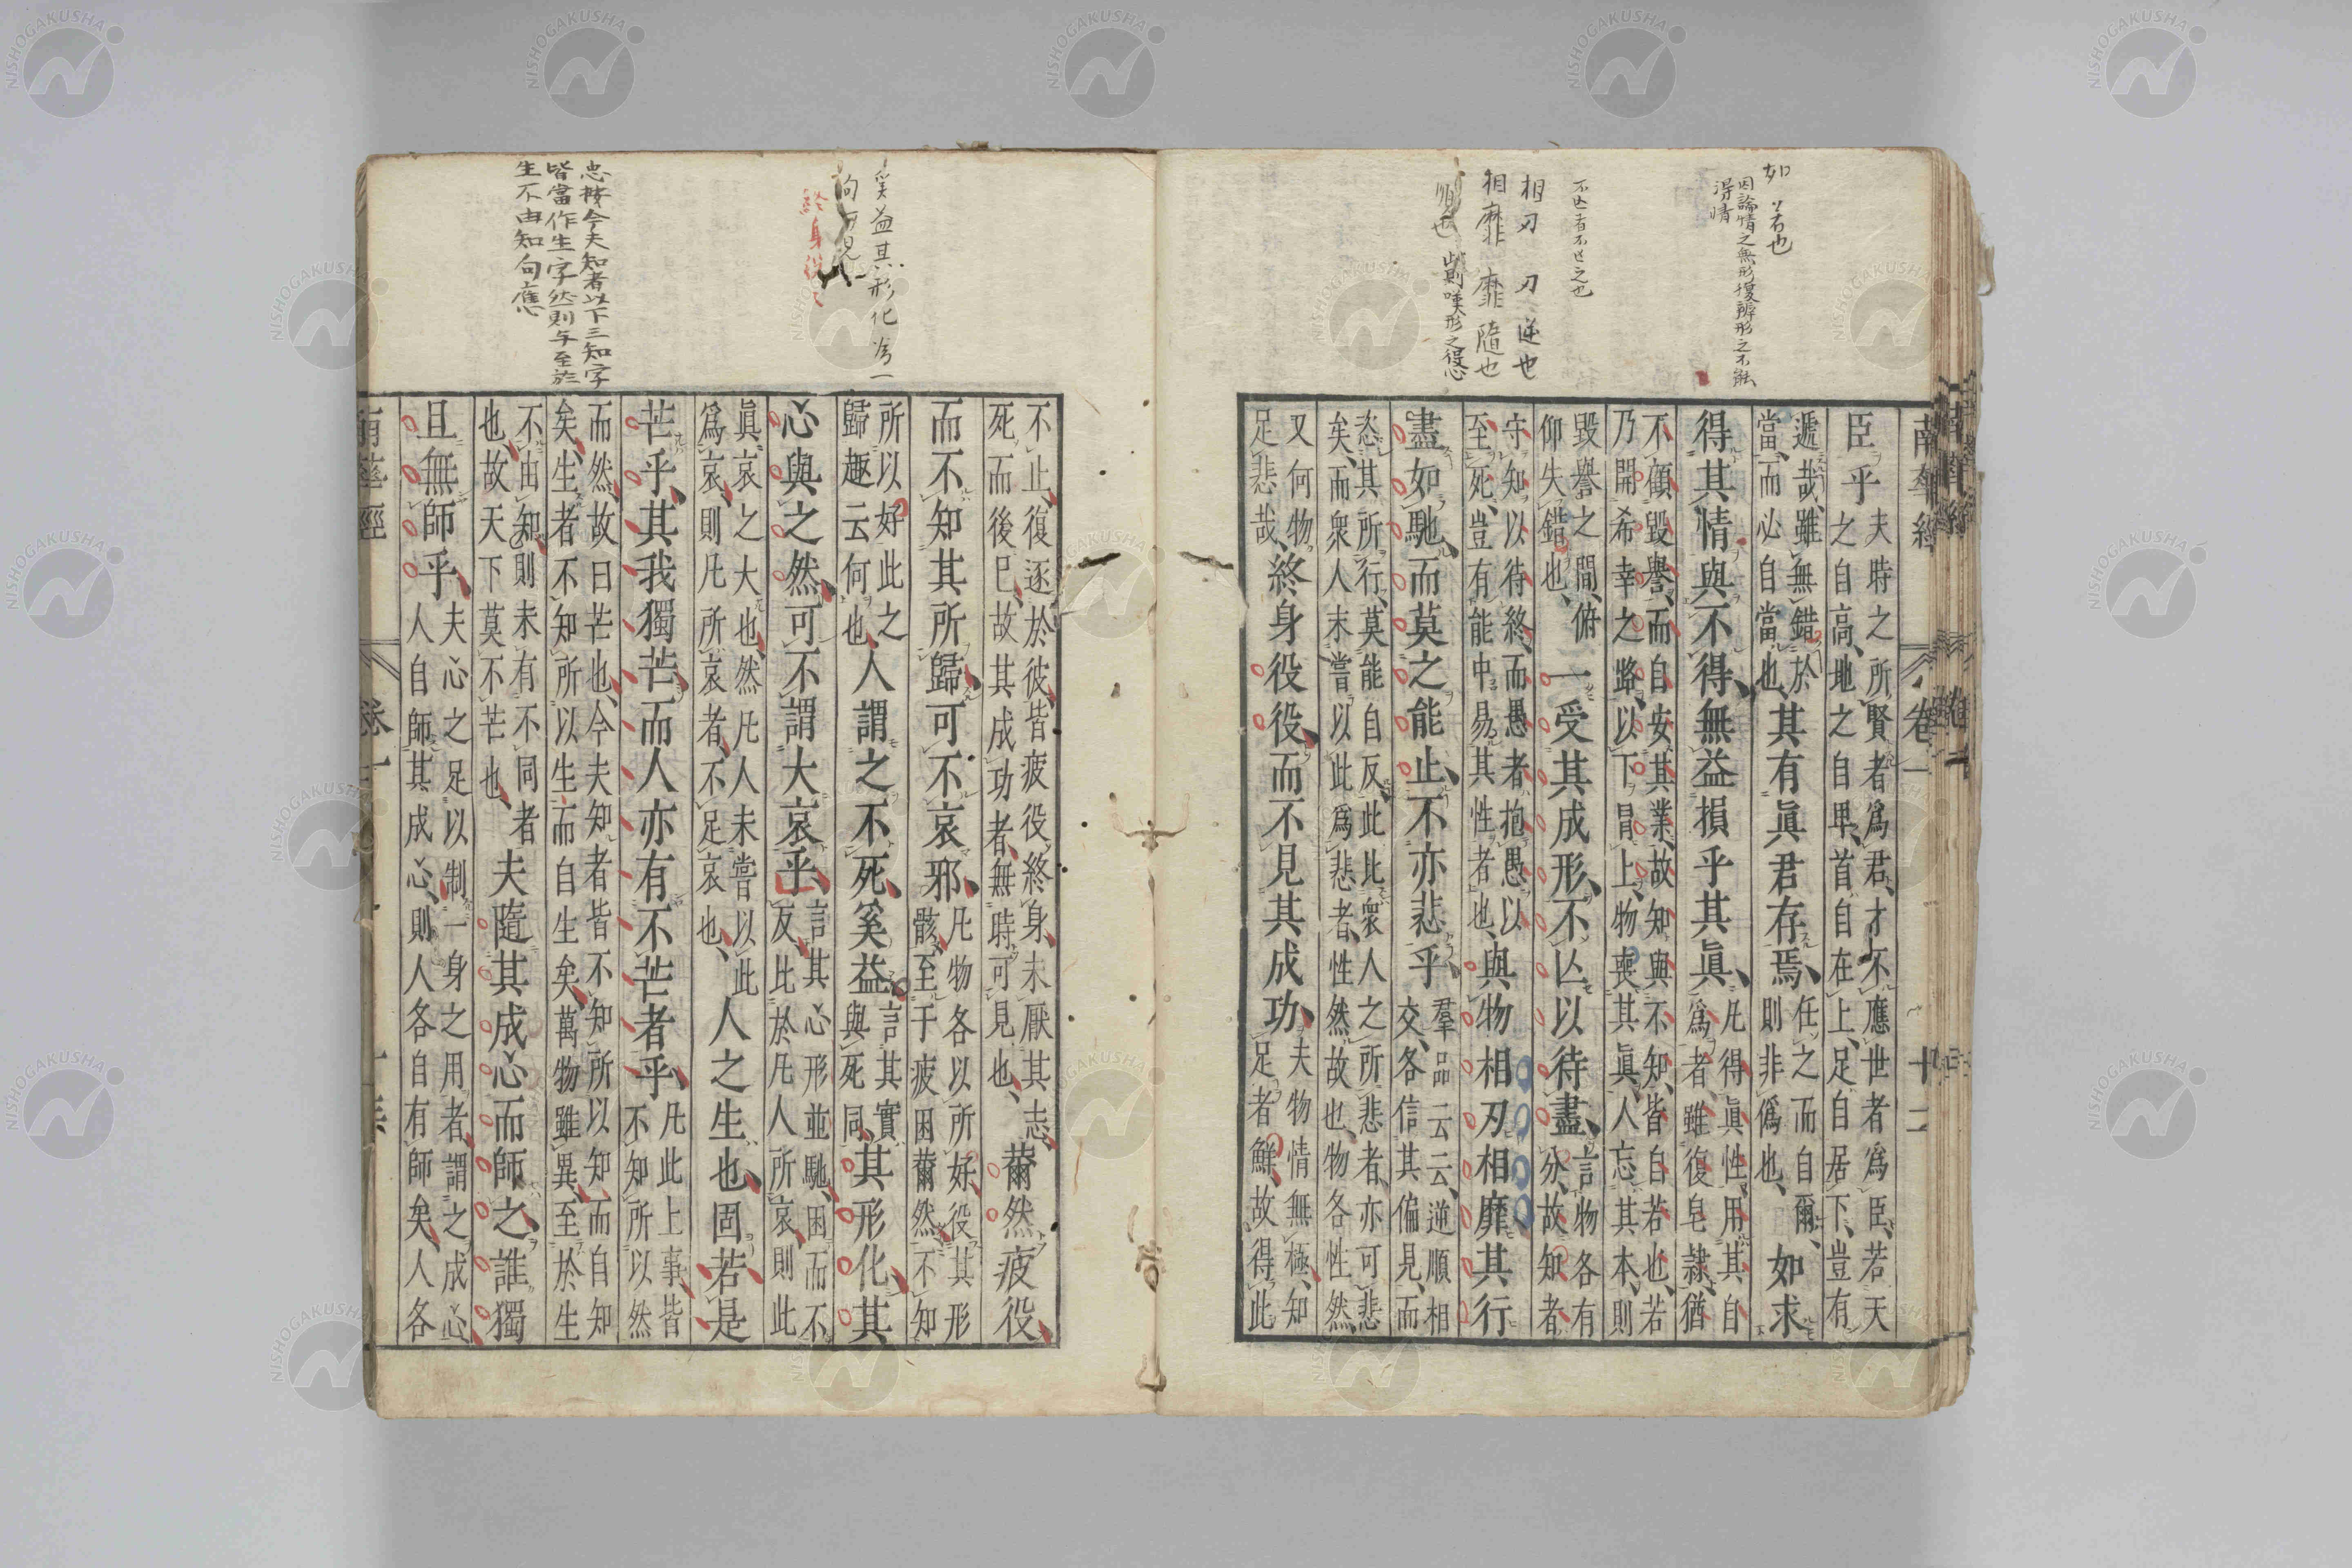 如 若也
因論情之無形復辨形之不能
得情
不亡者不亡之也
相刃 刃逆也
相靡 靡隨也
南華經 卷一 十二
臣乎夫時之所賢者爲君、才不應世者爲臣、若天之自高、地之自卑、首自在上、足自居下、豈有
遞哉、雖無錯於當、而必自當也、其有眞君存焉、任之而自爾、則非僞也、如求
得其情與不得、無益損乎其眞、凡得眞性、用其自爲者、雖復皂隸、猶
不顧毀譽、而自安其業、故知與不知、皆自若也、若乃開希幸之路、以下冐上、物喪其眞、人忘其本、則
毀譽之間、俯仰失錯也、一受其成形、不亡以待盡、言物各有分、故知者
守知以待終、而愚者抱愚以至死、豈有能中易其性者也、與物相刃相靡、其行
盡如馳、而莫之能止、不亦悲乎、羣品云云、逆順相交、各信其偏見、而
恣其所行、莫能自反、此比衆人之所悲者、亦可悲矣、而衆人未嘗以此爲悲者、性然故也、物各性然、
又何物足悲哉、終身役役、而不見其成功、夫物情無極、知足者鮮、故得此
奚益其形化爲一
終身役
忠按今夫知者以下三知字
皆當作生字然則与至於
生不由知句應
不止、復逐於彼、皆疲役終身、未厭其志、死而後已、故其成功者、無時可見也、薾然疲役、
而不知其所歸、可不哀邪、凡物各以所好、役其形骸、至于疲困薾然、不知
所以好此之歸趣云何也、人謂之不死、奚益、言其實與死同、其形化、其
心與之然、可不謂大哀乎、言其心形並馳、困而不反、比於凡人所哀、則此
眞哀之大也、然凡人未嘗以此爲哀、則凡所哀者、不足哀也、人之生也、固若是
芒乎、其我獨芒、而人亦有不芒者乎、凡此上事、皆不知所以然
而然、故曰芒也、今夫知者皆不知所以知而自知矣、生者不知所以生而自生矣、萬物雖異、至於生
不由知、則未有不同者也、故天下莫不芒也、夫隨其成心而師之、誰獨
且無師乎、夫心之足以制一身之用者、謂之成心、人自師其成心、則人各自有師矣、人各
南華經 卷一